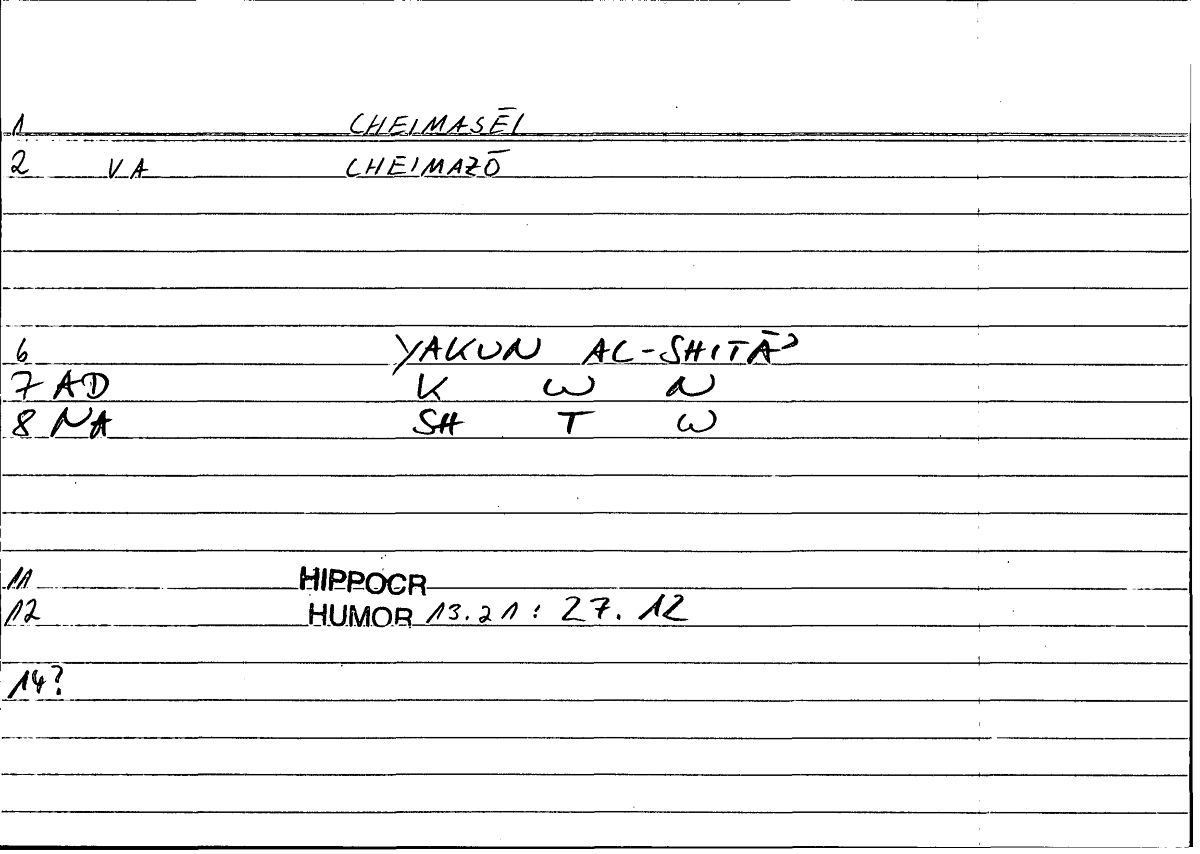 1 CHEIMASĒI
2 VA CHEIMAZŌ
6 YAKUN AL-SHITĀʾ
7 AD K W N
8 NA SH T W
11 HIPPOCR
12 HUMOR 13.21: 27.12
14?